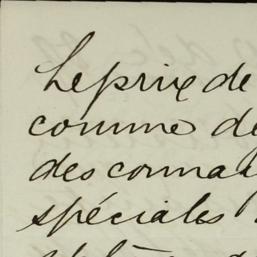 Le prix de
comme de
des connai
spéciales